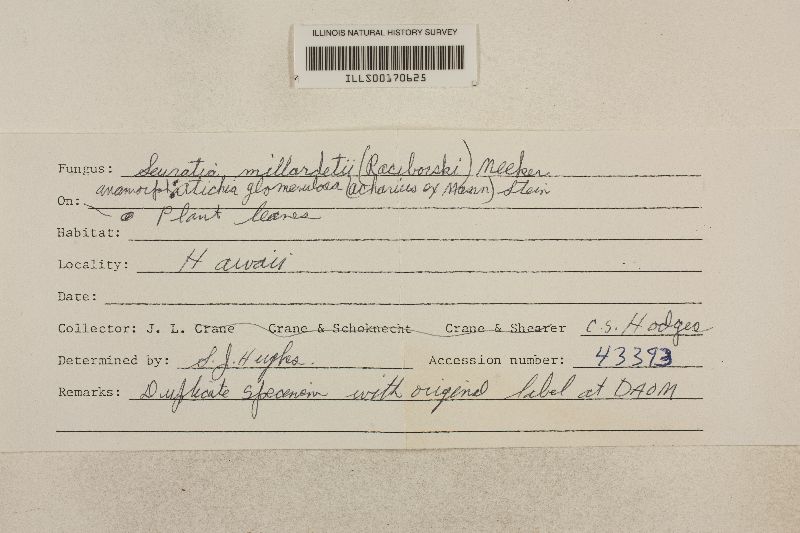 ILLINOIS NATURAL HISTORY SURVEY
ILLS00170625
Fungus: Seuratia millardetii (Raciborski) Meeker
anamorph: Atichia glomerulosa (Acharius ex Mann) Stein
On: Plant leaves
Habitat:
Locality: Hawaii
Date:
Collector: J. L. Crane Crane & Schoknecht Crane & Shearer C.S. Hodges
Determined by: S.J. Hughes. Accession number: 43393
Remarks: Duplicate specimen with original label at DAOM